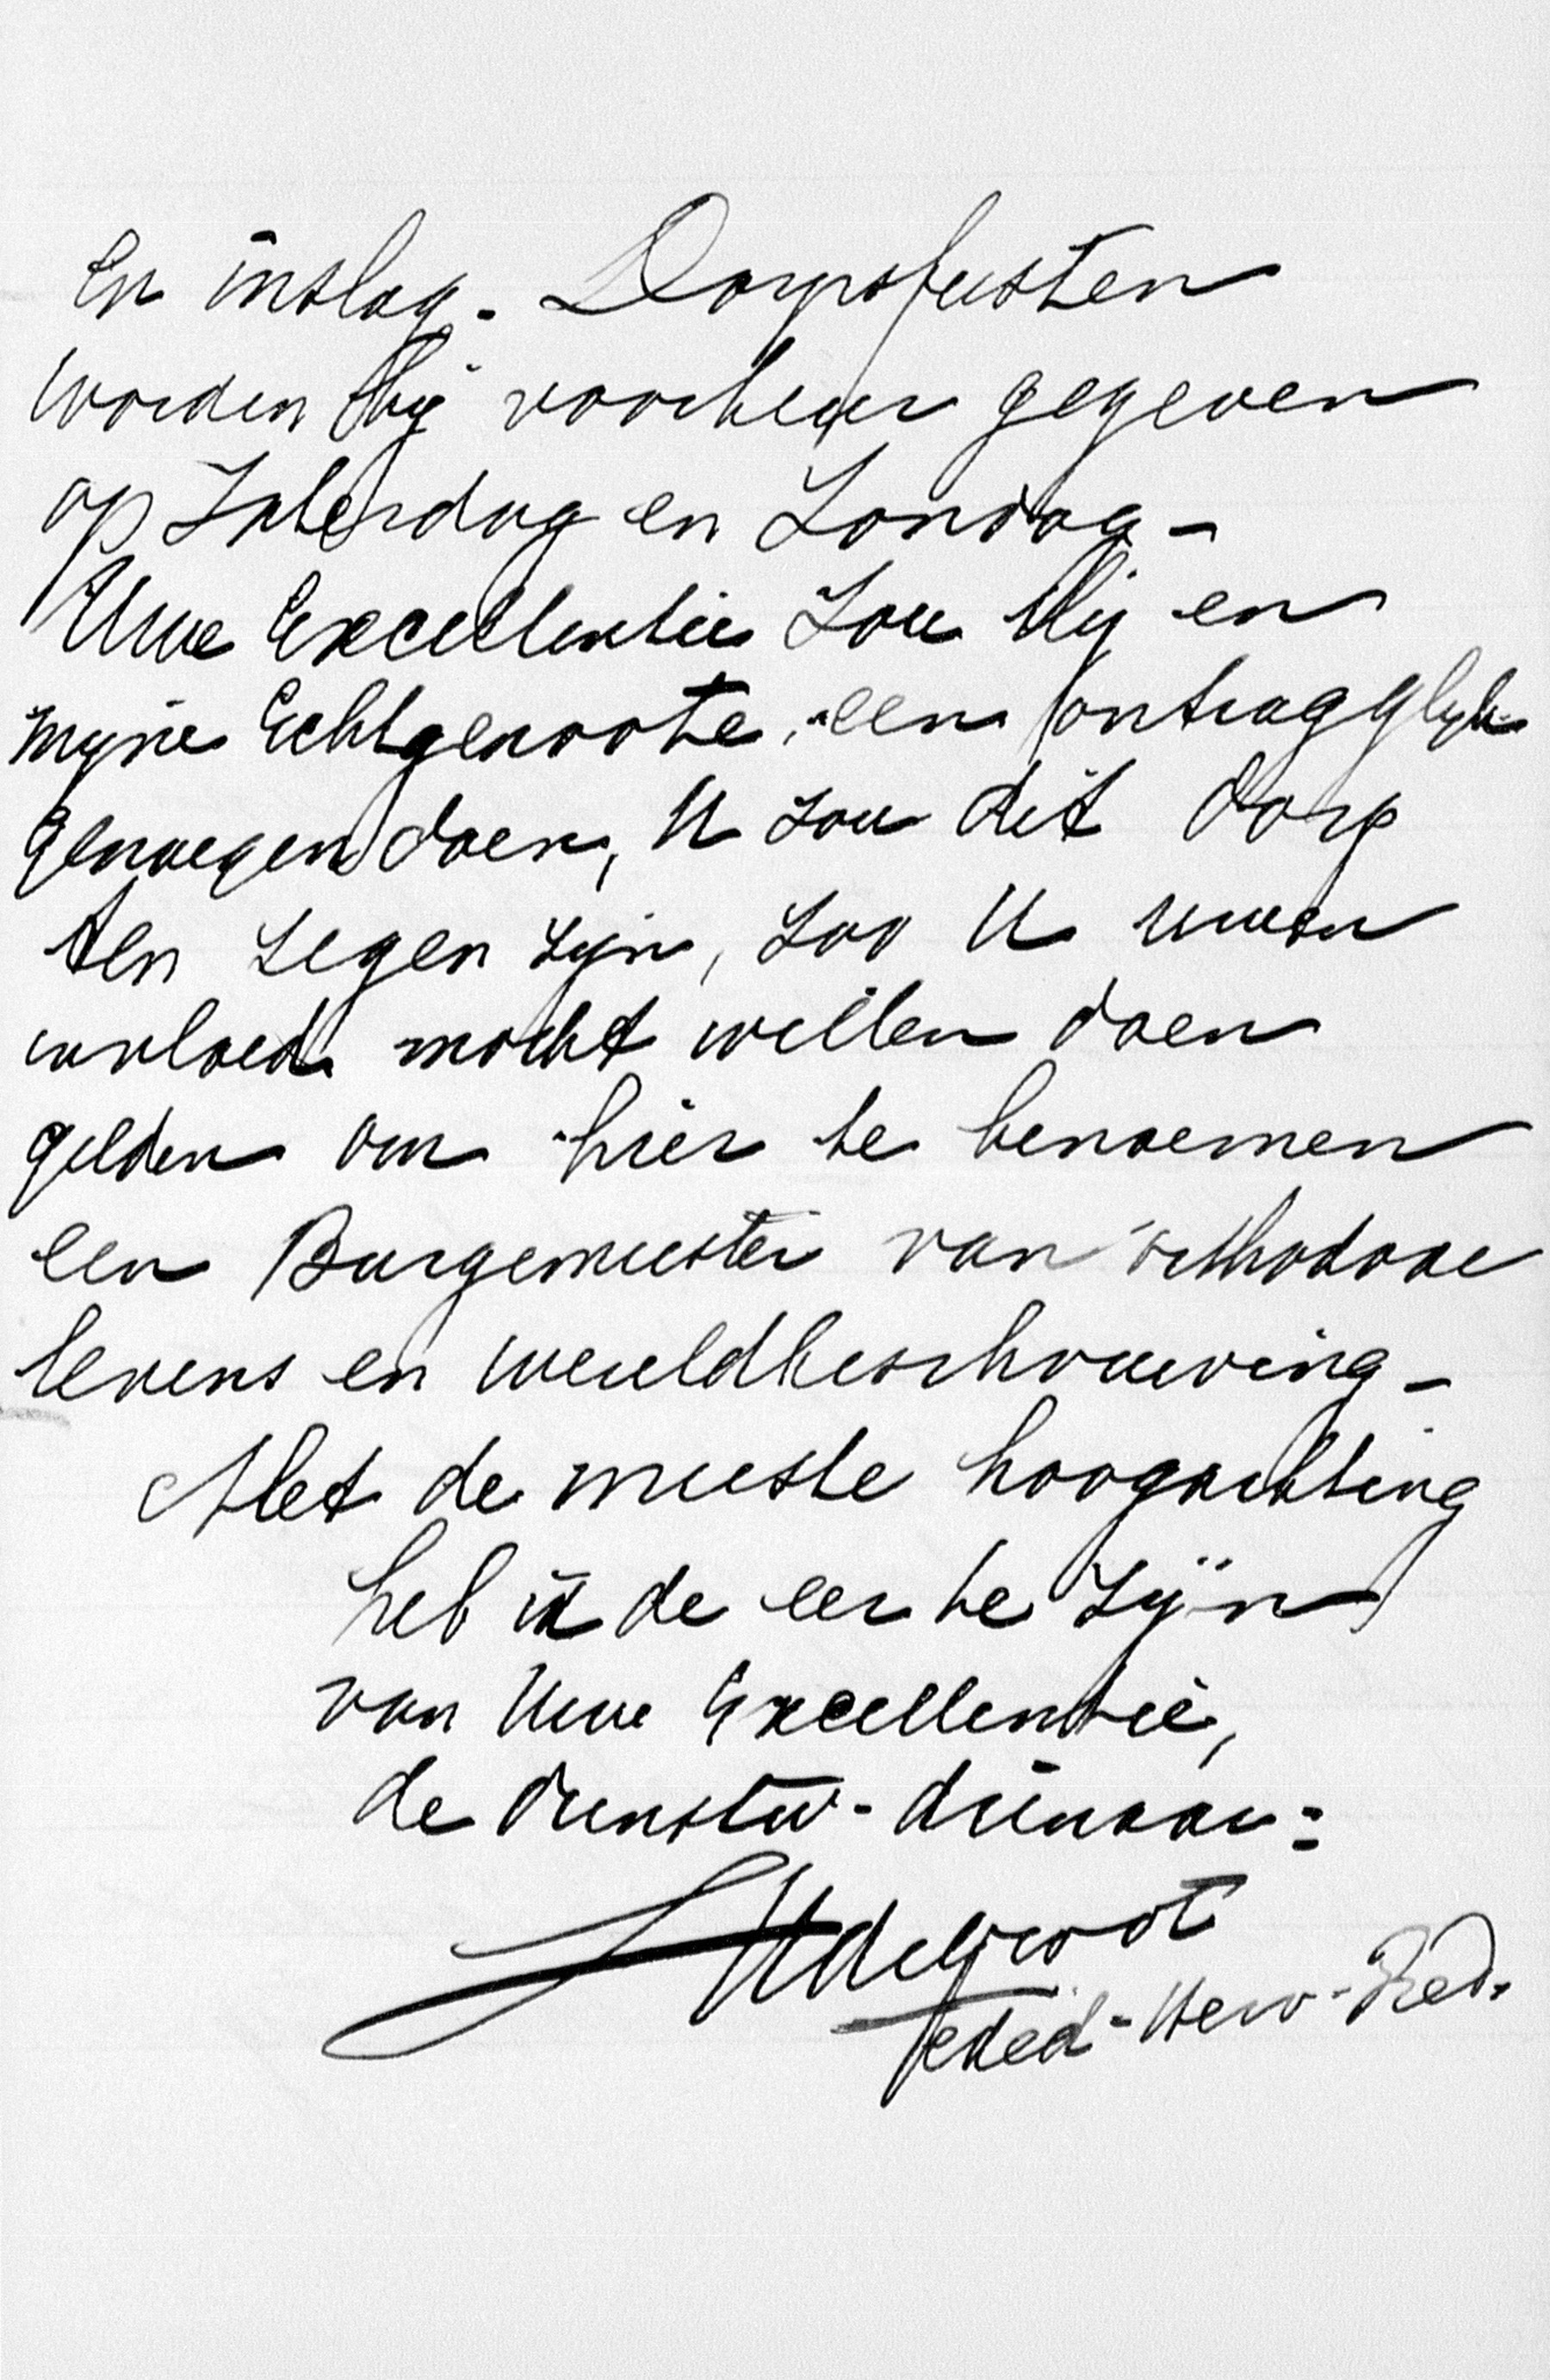 en inslag. Dorpsfeesten
worden bij voorkeur gegeven
op Zaterdag en Zondag -
Uwe Excellentie zou Mij en
mijne Echtgenoote, een
genoegen doen, U zou dit dorp
ten zegen zijn, zoo U uwen
invloed mocht willen doen
gelden om hier te benoemen
een Burgemeester van orthodoxe
levens en wereldbeschouwing -
Met de meeste hoogachting
heb ik de eer te zijn
van Uwe Excellentie,
de dienstw. dienaar:
Ned. Herv. Pred.